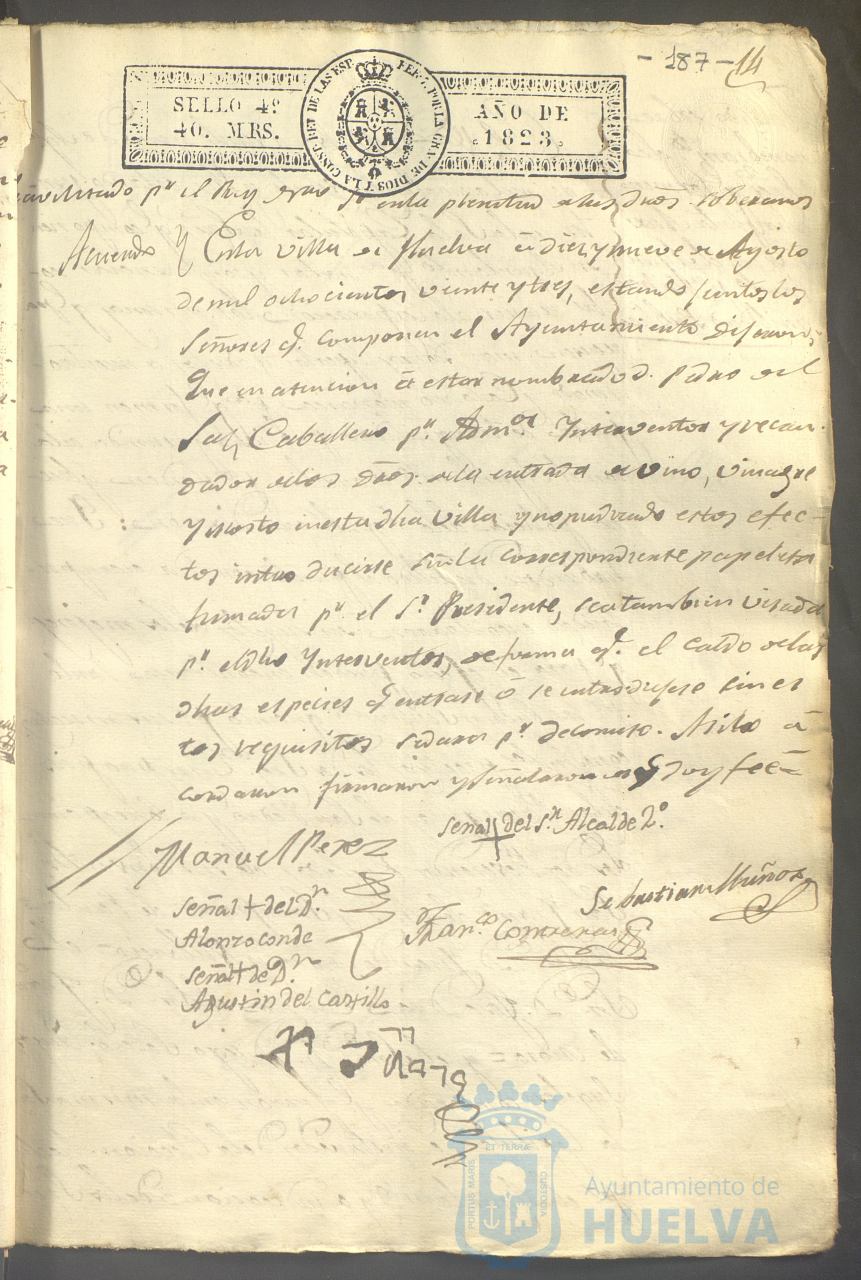 - 187 - 14
SELLO 4º
40. MRS.
FERN. 7. POR LA GRA. DE DIOS Y LA CONST. REY DE LAS ESP.
AÑO DE
1823.
pr. el Rey en la plenitud de sus dros. soberanos
Acuerdo
Y En la villa de Huelva à diez y nueve de Agosto
de mil ochocientos veinte y tres, estando juntos los
Señores q. componen el Ayuntamiento dijeron:
Que en atencion à estar nombrado d. Pedro del
Saz Caballero pr. Admor. Ynterventor y recau-
dador de los dros. de la entrada de vino, vinagre
y mosto en esta dha villa y no pudiendo estos efec-
tos introducirse sin la correspondiente papeleta
firmada pr. el Sr. Presidente, sea tambien visada
pr. el dho Ynterventor, de forma q. el caldo de las
dhas especies q. entrase ò se introdujese sin es
tos requisitos se dara pr. decomiso. Asi lo à
cordaron firmaron y señalaron doy feè=
Señal + del Sr. Alcalde 2º.
Manuel Perez
Sebastian Muñoz
Señal + del Dn.
Alonzo conde
Franco. Contreras
Señal + de Dn.
Agustin del Castillo
ET TERRÆ
PORTUS MARIS
CUSTODIA
Ayuntamiento de
HUELVA